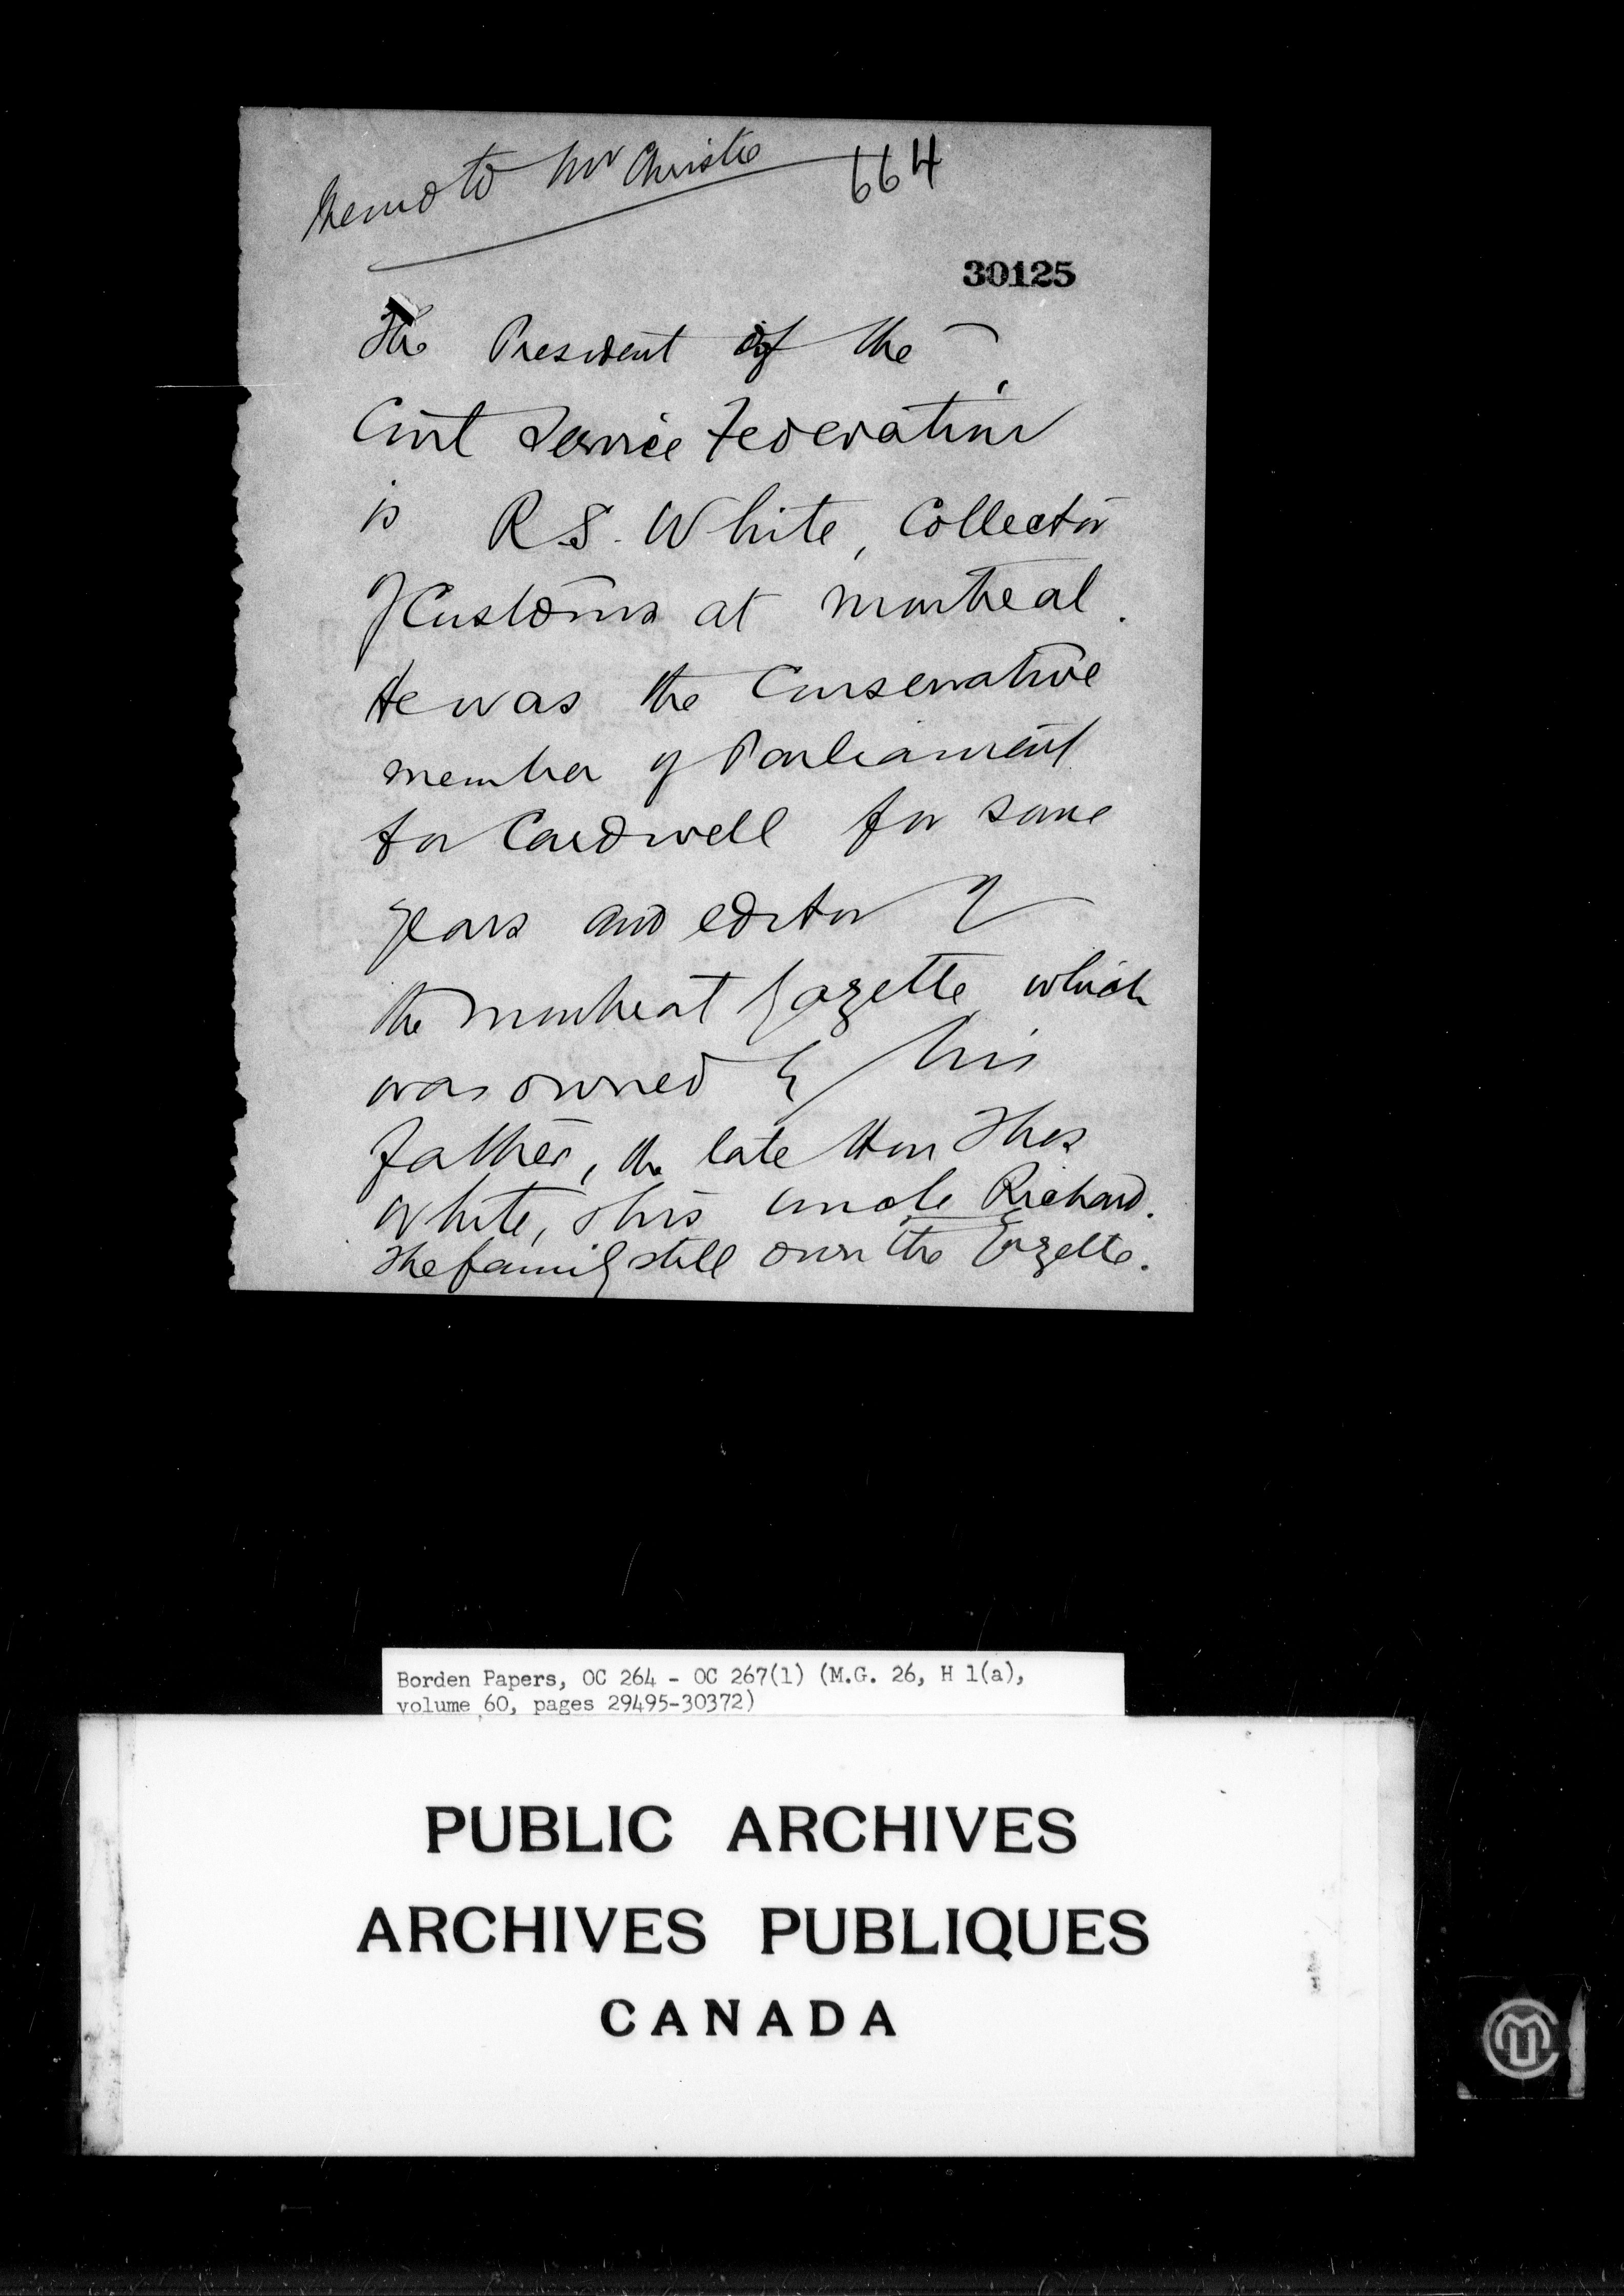 Memo to Mr Christie 664
30125
The President of the
Civil Service Federation
is R.S. White, Collector
of Customs at Montreal.
He was the Conservative
member of Parliament
for Cardwell for some
years and editor of
the Montreal Gazette which
was owned by his
father, the late Hon Thos
White, & his uncle Richard.
The family still own the Gazette.
Borden Papers, OC 264 - OC 267(1) (M.G. 26, H 1(a),
volume 60, pages 29495-30372)
PUBLIC ARCHIVES
ARCHIVES PUBLIQUES
CANADA